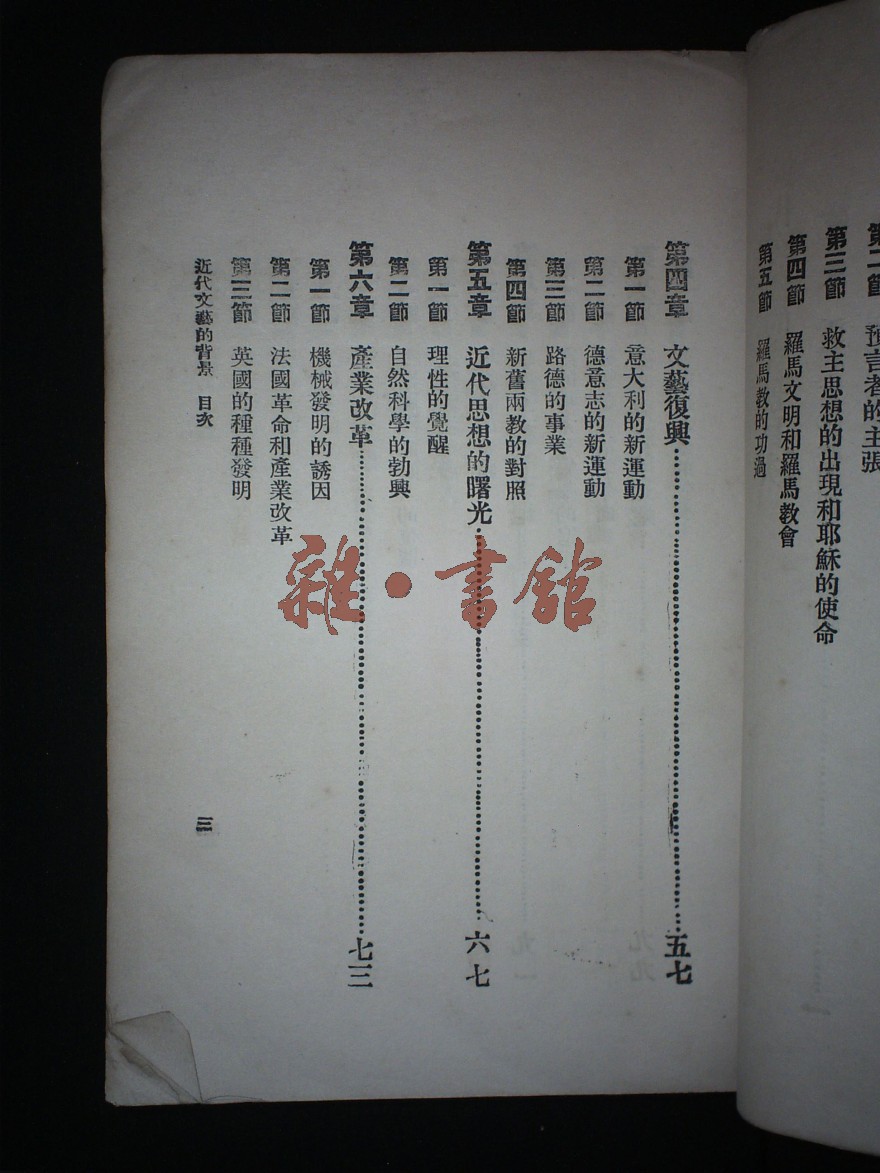 第二節 預言者的主張
第三節 救主思想的出現和耶穌的使命
第四節 羅馬文明和羅馬教會
第五節 羅馬教的功過
第四章 文藝復興……五七
第一節 意大利的新運動
第二節 德意志的新運動
第三節 路德的事業
第四節 新舊兩教的對照
第五章 近代思想的曙光……六七
第一節 理性的覺醒
第二節 自然科學的勃興
第六章 產業改革……七三
第一節 機械發明的誘因
第二節 法國革命和產業改革
第三節 英國的種種發明
近代文藝的背景 目次
三
雜·書館